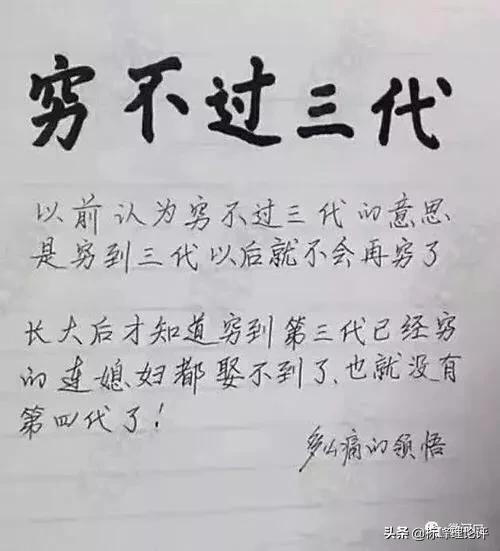 穷不过三代
以前认为穷不过三代的意思
是穷到三代以后就不会再穷了
长大后才知道穷到第三代已经穷
的连媳妇都娶不到了、也就没有
第四代了！
多么痛的领悟
头条